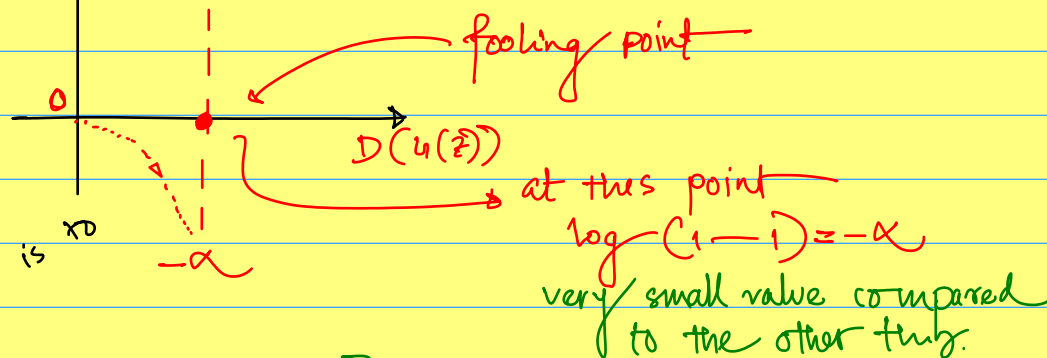 fooling point
0
D(G(z))
at this point
log (1 — 1) = -∝
-∝
is
very small value compared
to the other thing.